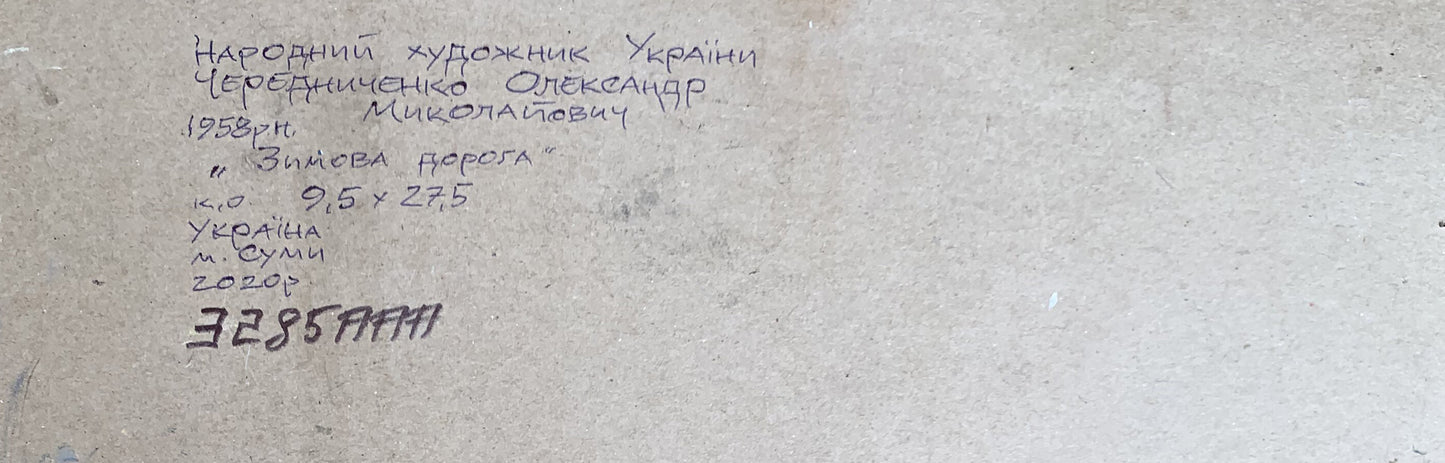 Народний художник України
Чередниченко Олександр
Миколайович
1958рн.
„Зимова дорога"
к.о. 9,5 х 27,5
Україна
м. Суми
2020р.
3285ААА